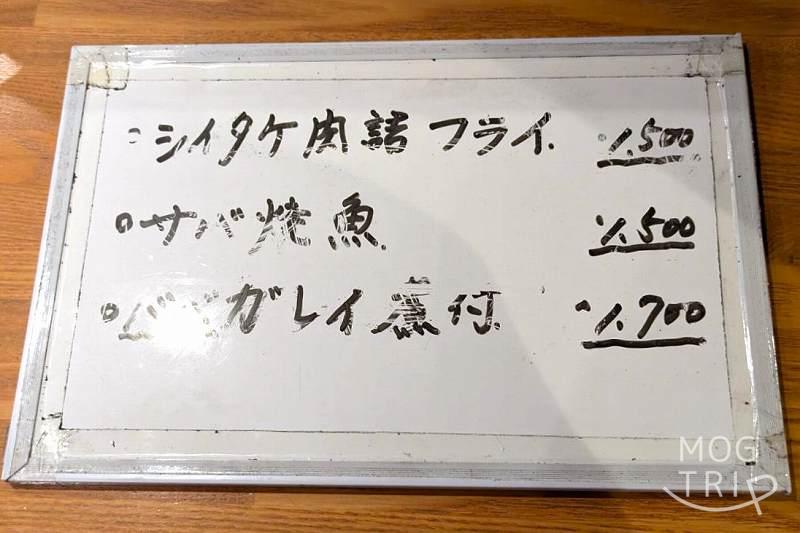 ○シイタケ肉詰フライ 1.500
○サバ焼魚 1.500
○ババガレイ煮付 1.700
MOG
TRIP